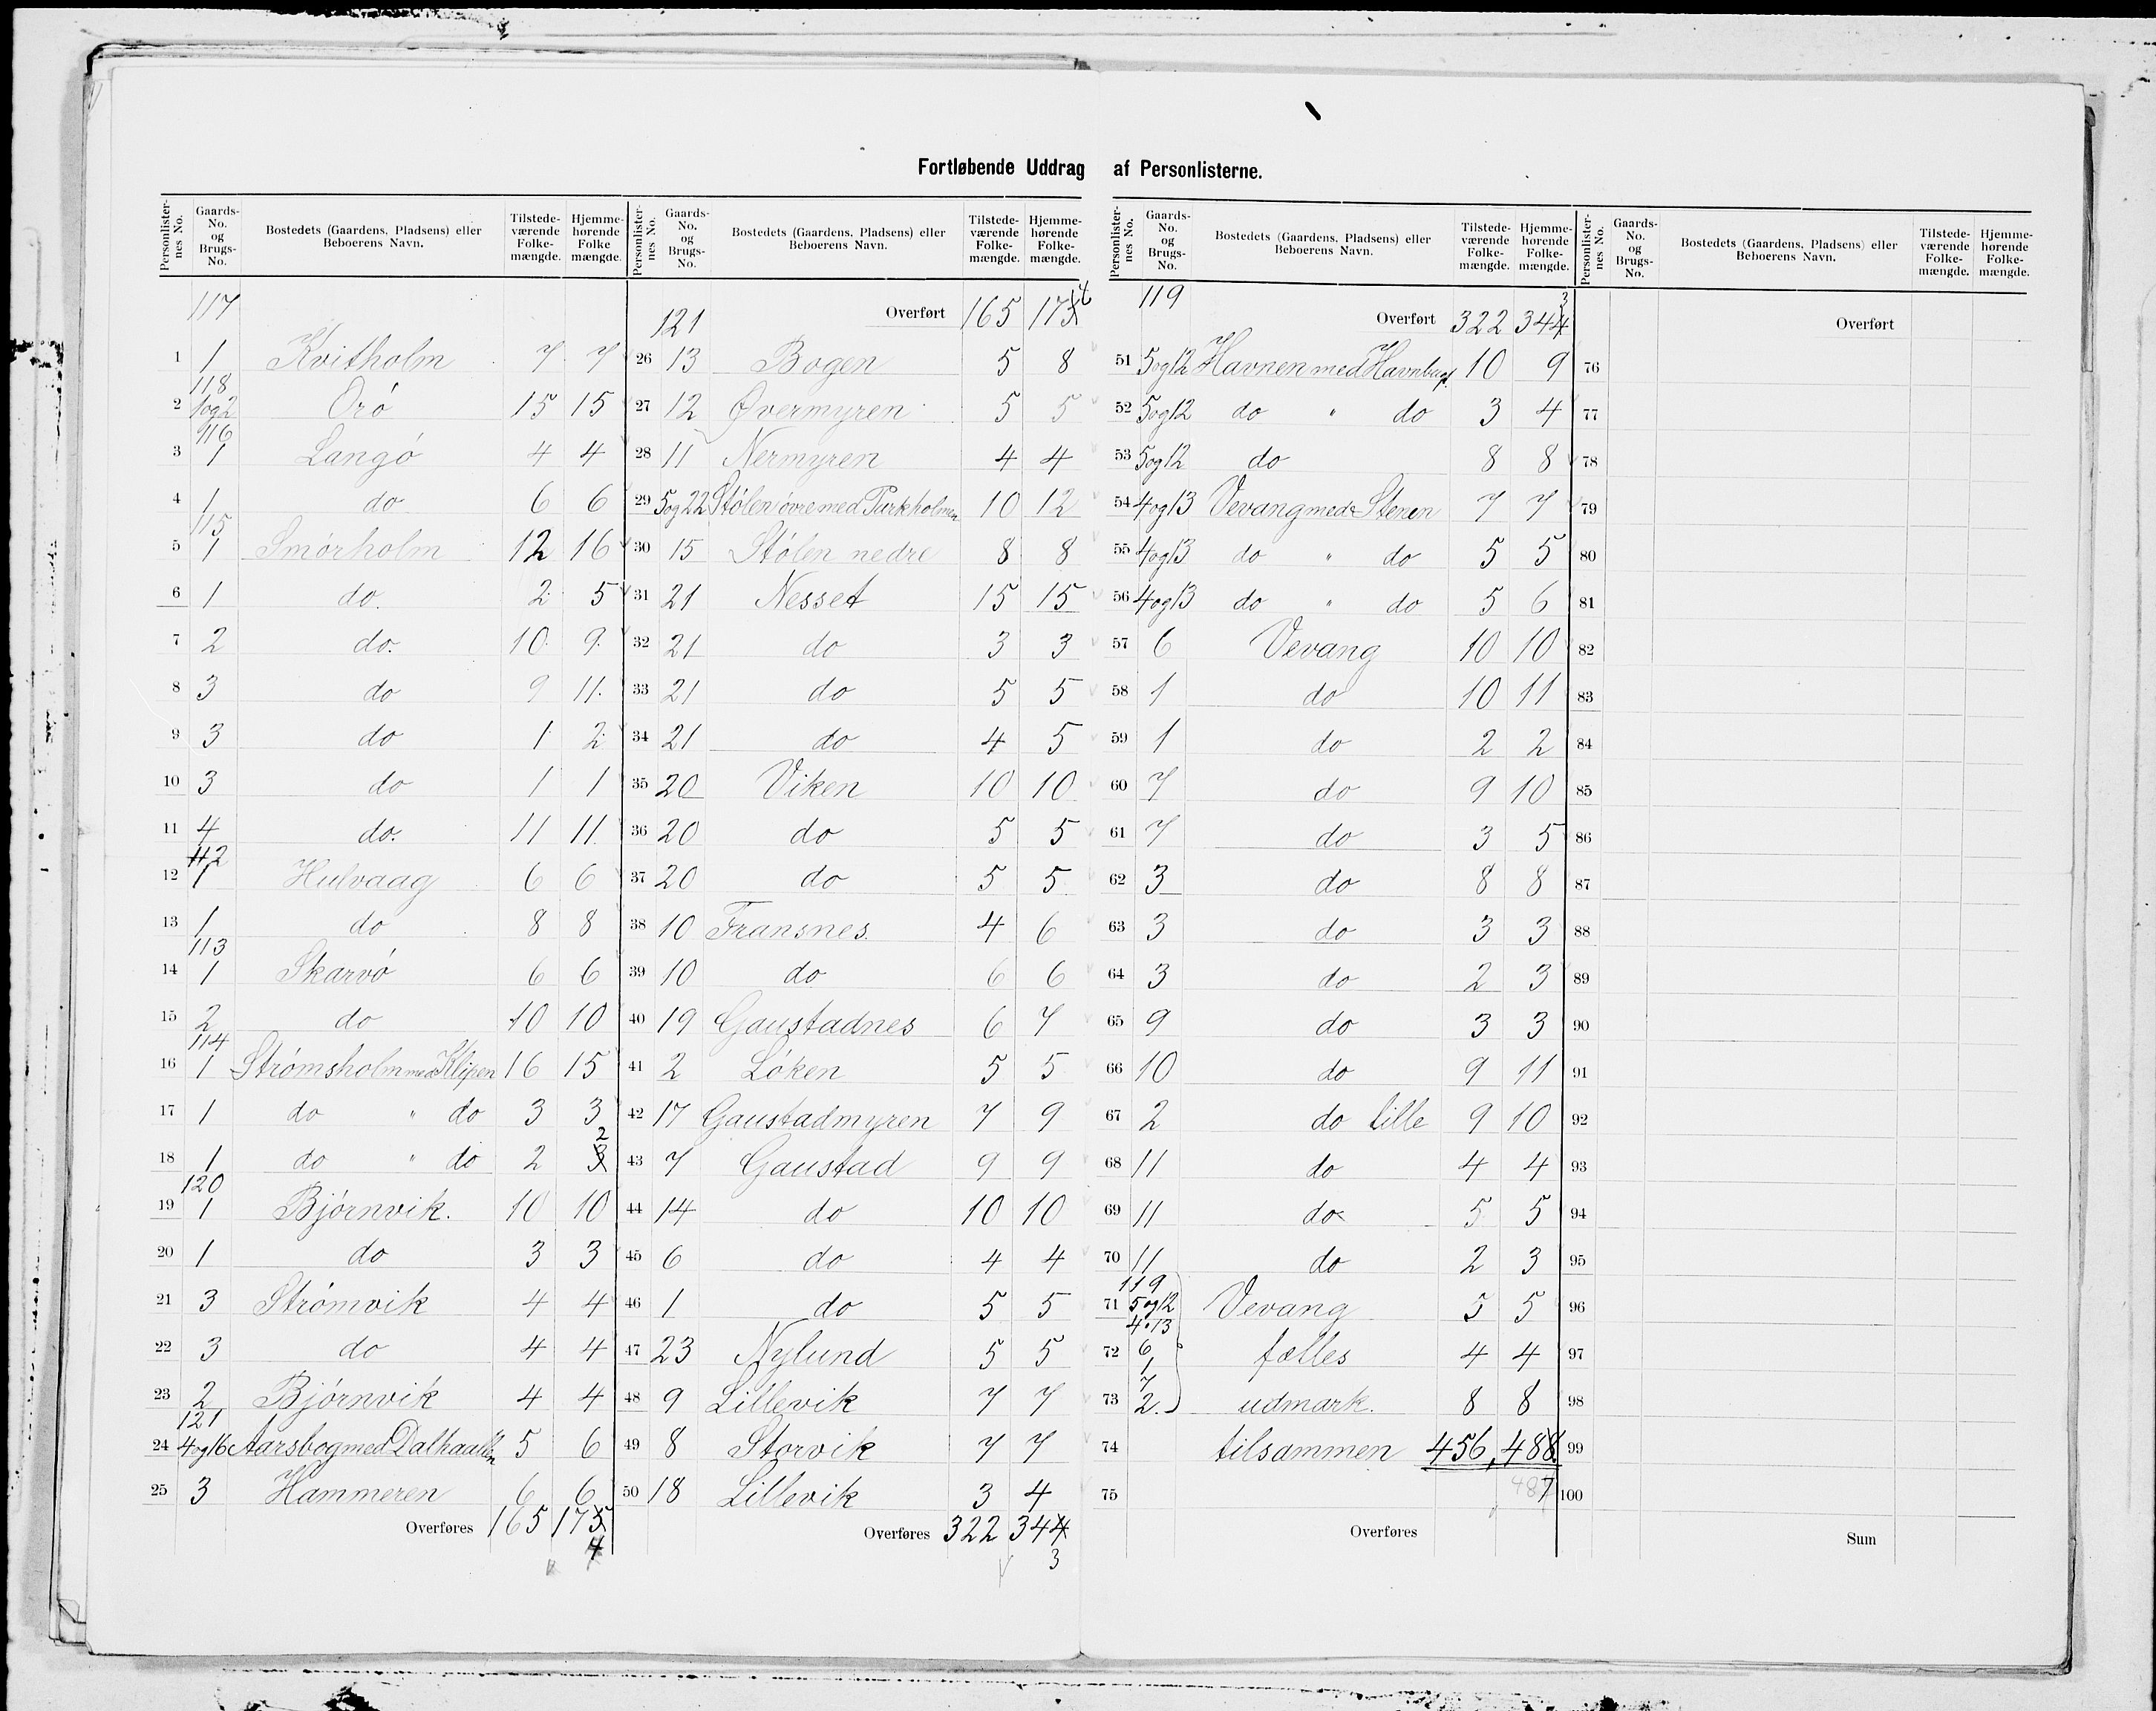 Fortløbende Uddrag af Personlisterne.
Personlister-nes No. Gaards-No. og Brugs-No. Bostedets (Gaardens, Pladsens) eller Beboerens Navn. Tilstede-værende Folke-mængde. Hjemme-hørende Folke mængde.
117
1 1 Kvitholm 7 7
118
2 1og2 Orö 15 15
116
3 1 Langö 4 4
4 1 do 6 6
115
5 1 Smörholm 12 16
6 1 do. 2 5
7 2 do. 10 9
8 3 do 9 11
9 3 do 1 2
10 3 do 1 1
11 4 do. 11 11
112
12 1 Hulvaag 6 6
13 1 do 8 8
113
14 1 Skarvö 6 6
15 2 do 10 10
114
16 1 Strömsholm med Klipen 16 15
17 1 do " do 3 3
2
18 1 do " do 2 3
120
19 1 Björnvik. 10 10
20 1 do 3 3
21 3 Strömvik 4 4
22 3 do 4 4
23 2 Björnvik 4 4
121
24 4og16 Aarsbogmed Dalhaallen 5 6
25 3 Hammeren 6 6
Overføres 165 175
4
Personlister-nes No. Gaards-No. og Brugs-No. Bostedets (Gaardens, Pladsens) eller Beboerens Navn. Tilstede-værende Folke-mængde. Hjemme-hørende Folke-mængde.
4
121 Overført 165 175
26 13 Bogen 5 8
27 12 Øvermyren 5 5
28 11 Nermyren 4 4
29 5og22 Stölen övre med Purkholmen 10 12
30 15 Stölen nedre 8 8
31 21 Nesset 15 15
32 21 do 3 3
33 21 do 5 5
34 21 do 4 5
35 20 Viken 10 10
36 20 do 5 5
37 20 do 5 5
38 10 Fransnes. 4 6
39 10 do 6 6
40 19 Gaustadnes 6 7
41 2 Löken 5 5
42 17 Gaustadmyren 7 9
43 7 Gaustad 9 9
44 14 do 10 10
45 6 do 4 4
46 1 do 5 5
47 23 Nylund 5 5
48 9 Lillevik 7 7
49 8 Storvik 7 7
50 18 Lillevik 3 4
Overføres 322 344
3
Personlister-nes No. Gaards-No. og Brugs-No. Bostedets (Gaardens, Pladsens) eller Beboerens Navn. Tilstede-værende Folke-mængde. Hjemme-hørende Folke-mængde.
119 3
Overført 322 344
51 5og12 Havnen med 10 9
52 5og12 do " do 3 4
53 5og12 do 8 8
54 4og13 Vevang med Stenen 7 7
55 4og13 do " do 5 5
56 4og13 do " do 5 6
57 6 Vevang 10 10
58 1 do 10 11
59 1 do 2 2
60 7 do 9 10
61 7 do 3 5
62 3 do 8 8
63 3 do 3 3
64 3 do 2 3
65 9 do 3 3
66 10 do 9 11
67 2 do lille 9 10
68 11 do 4 4
69 11 do 5 5
70 11 do 2 3
119
71 5og12 Vevang 5 5
4"13
72 6 fælles 4 4
1
7
73 2. udmark. 8 8
74 tilsammen 456, 488
75 487
Overføres
Personlister-nes No. Gaards-No. og Brugs-No. Bostedets (Gaardens, Pladsens) eller Beboerens Navn. Tilstede-værende Folke-mængde. Hjemme-hørende Folke-mængde.
Overført
76
77
78
79
80
81
82
83
84
85
86
87
88
89
90
91
92
93
94
95
96
97
98
99
100
Sum